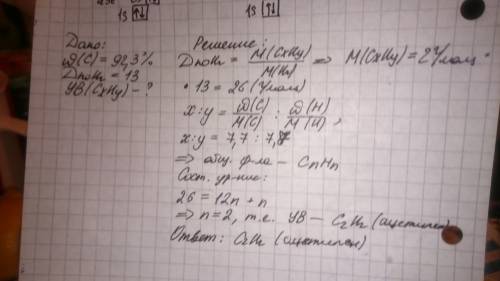 1s ↑↓ 1s ↑↓
Дано:
ω(C) = 92,3%
DпоH₂ = 13
УВ(CxHy) - ?
Решение:
DпоH₂ = M(CxHy)/M(H₂) => M(CxHy) = 2 г/моль ·
· 13 = 26 (г/моль)
x : y = ω(C)/M(C) : ω(H)/M(H),
x : y = 7,7 : 7,7
=> общ. ф-ла - CnHn
Сост. ур-ние:
26 = 12n + n
=> n = 2, т.е. УВ - C₂H₂ (ацетилен)
Ответ: C₂H₂ (ацетилен)